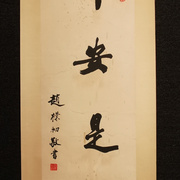 安是
趙樸初敬書